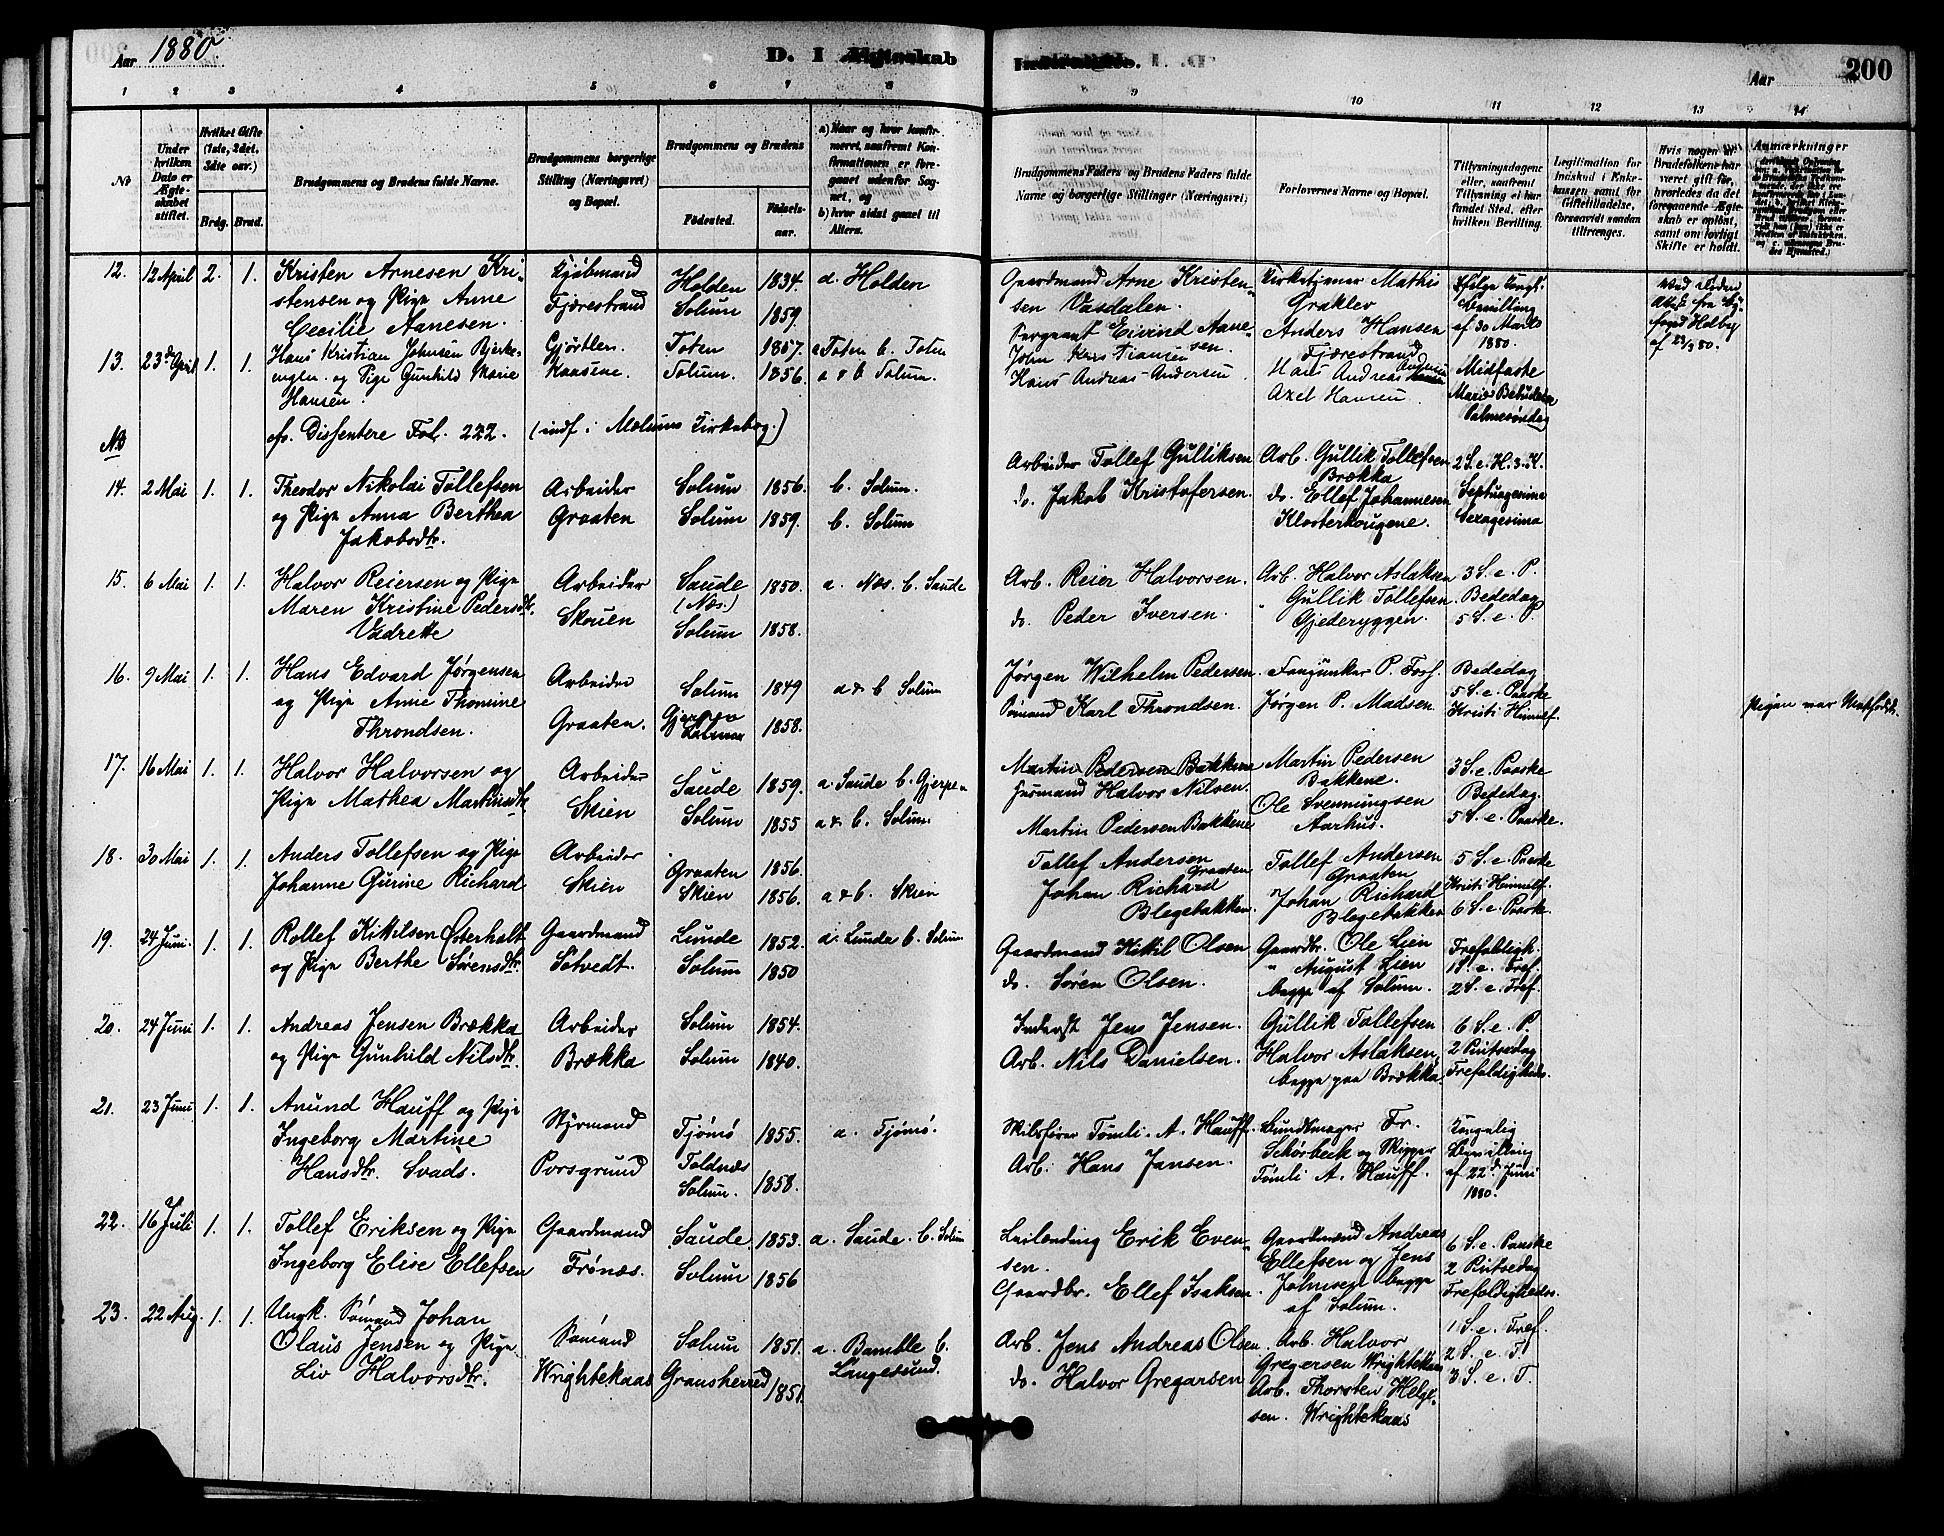 Aar 1880
D. I Ægteskab
Indtraadte.
Aar
200
1 2 3 4 5 6 7 8 9 10 11 12 13 14
No
Under hvilken Dato er Ægteskabet stiftet.
Hvilket Gifte (1ste, 2det, 3dte osv.)
Brdg. Brud.
Brudgommens og Brudens fulde Navne.
Brudgommens borgerlige Stilling (Næringsvei) og Bopæl.
Brudgommens og Brudens
Fødested.
Fødselsaar.
a) Naar og hvor konfirmeret, saafremt Konfirmationen er foregaaet udenfor Sognet, og
b) hvor sidst gaaet til Alters.
Brudgommens Faders og Brudens Faders fulde Navne og borgerlige Stillinger (Næringsvei)
Forlovernes Navne og Bopæl.
Tillysningsdagene eller, saafremt Tillysning ei har fundet Sted, efter hvilken Bevilling.
Legitimation for Indskud i Enkekassen samt for Giftetilladelse, forsaavidt saadan tiltrænges.
Hvis nogen af Brudefolkene har været gift før, hvorledes da det foregaaende Ægteskab er opløst, samt om lovligt Skifte er holdt.
Anmærkninger
12. 12 April 2. 1. Kristen Arnesen Kri-
stensen og Pige Anne
Cecilie Aanesen.
Kjøbmand
Fjærestrand
Holden 1834. a. Holden
Solum 1859.
Gaardmand Arne Kristen-
sen Vasdalen.
Sergeant Eivind Aane-
sen.
Kirketjener Mathis
Graklev
Anders Hansen
Fjærestrand
Ifølge Kongl.
Bevilling
af do Marts
1880.
13. 23de April 1. 1. Hans Kristian Johnsen Bjerke-
engen og Pige Gunhild Marie
Hansen
Gjørtler.
Kaasene.
Toten 1857. a Toten b. Toten
Solum. 1856. a & b Solum.
John Kristiansen
Hans Andreas Andersen
Hans Andreas Andersen
Axel Hansen.
Midfaste
Mariæ Bebudelse
Palmesøndag
NB
cfr. Dissentere Fol. 222. (indf. i Melums Kirkebog.)
14. 2 Mai 1. 1. Theodor Nikolai Tollefsen
og Pige Anna Berthea
Jakobsdtr.
Arbeider
Graaten
Solum 1856. b. Solum.
Solum 1859. b. Solum
Arbeider Tollef Gulliksen
do. Jakob Kristofersen.
Arb. Gullik Tollefsen
Brækka
do. Ellef Johannesen
Klosterhougene.
2 S. e. H. 3. K.
Septuagesima
Sexagesima
15. 6 Mai 1. 1. Halvor Reiersen og Pige
Maren Kristine Pedersdtr.
Vadrette
Arbeider
Skouen
Saude 1850. a. Næs. b. Saude
(Næs.)
Solum 1858.
Arb. Reier Halvorsen.
do. Peder Iversen.
Arb. Halvor Aslaksen
" Gullik Tollefsen
Gjederyggen.
3 S. e. P.
Bededag
5 S. e. P.
16. 9 Mai 1. 1. Hans Edvard Jørgensen
og Pige Anne Thomine
Throndsen.
Arbeider
Graaten.
Solum 1849 a & b Solum
Gjerpen 1858.
Jørgen Wilhelm Pedersen
Sømand Karl Throndsen.
Fanejunker P. Foss.
Jørgen P. Madsen
Bededag
5 S. e. Paaske
Kristi Himmelf.
17. 16 Mai 1. 1. Halvor Halvorsen og
Pige Mathea Martinsdtr.
Arbeider
Skien
Saude 1859. a Saude b. Gjerpen
Solum 1855 a & b. Solum.
Martin Pedersen Bakkene
Husmand Halvor Nilsen.
Martin Pedersen Bakkene
Martin Pedersen
Bakkene.
Ole Svenningsen
Aarhus.
3 S. e. Paaske
Bededag.
5 S. e. Paaske.
18. 30 Mai 1. 1. Anders Tollefsen og Pige
Johanne Gurine Richard
Arbeider
Skien
Graaten 1856.
Skien 1856. a & b. Skien
Tollef Andersen
Graaten
Johan Richard
Blegebakken.
Tollef Andersen
Graaten
Johan Richard
Blegebakken
5 S. e. Paaske
Kristi Himmelf.
6 S. e. Paaske.
19. 24 Juni. 1. 1. Rollef Kittilsen Østerholt
og Pige Berthe Sørensdtr.
Gaardmand
Solvedt.
Lunde 1852. a. Lunde b. Solum
Solum 1850
Gaardmand Kittil Olsen
do. Søren Olsen.
Gaardbr. Ole Lien
" August Lien
begge af Solum.
Trefoldigh.
1 S. e. Tref.
2 S. e. Tref.
20. 24 Juni 1. 1. Andreas Jensen Brækka
og Pige Gunhild Nilsdtr.
Arbeider
Brækka
Solum 1854.
Solum 1840.
Inderst Jens Jensen.
Arb. Nils Danielsen.
Gullik Tollefsen
Halvor Aslaksen,
begge paa Brækka
6 S. e. P.
2 Pintsedag
Trefoldigheds.
21. 23 Juni 1. 1. Anund Hauff og Pige
Ingeborg Martine
Hansdtr. Svads.
Styrmand
Porsgrund
Tjømø 1855. a. Tjømø.
Toldnæs
Solum. 1858.
Skibsfører Tømli. A. Hauff.
Arb. Hans Jansen.
Bundtmager Fr.
Schørbeck og Skipper
Tømli A. Hauff.
Kongelig
Bevilling
af 22d Juni
1880.
22. 16 Juli 1. 1. Tollef Eriksen og Pige
Ingeborg Elise Ellefsen
Gaardmand
Frønæs.
Saude 1853. a. Saude. b. Solum
Solum 1856
Leilending Erik Even-
sen.
Gaardbr. Ellef Isaksen.
Gaardmænd Andreas
Ellefsen og Jens
Johnsen begge
af Solum.
6 S. e. Paaske
2 Pintsedag
Trefoldigheds.
23. 22 Aug. 1. 1. Ungk. Sømand Johan
Olaus Jensen og Pige
Liv Halvorsdtr.
Sømand
Wrightekaas
Solum 1851. a. Bamble b.
Langesund.
Gransherred 1851.
Arb. Jens Andreas Olsen.
do. Halvor Gregarsen
Arb. Halvor
Gregersen Wrightekaas
Arb. Thorsten Helge-
sen. Wrightekaas
1 S. e. Tref.
2 S. e. T.
3 S. e. T.